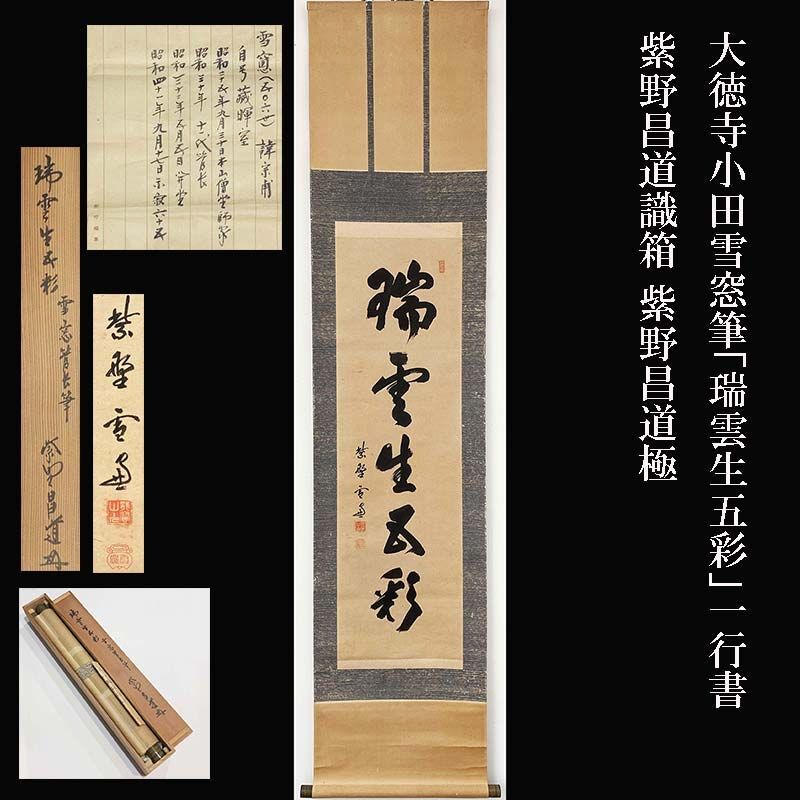 大徳寺小田雪窓筆「瑞雲生五彩」一行書
紫野昌道識箱 紫野昌道極
瑞雲生五彩
紫野雪窓
雪窓(五〇六世)諱宗甫
自号 蔵暉室
昭和二十五年九月三十日本山僧堂師家
昭和三十年 十一代管長
昭和三十二年五月五日 開堂
昭和四十一年九月十七日示寂六十五
瑞雲生五彩
雪窓管長筆
紫野昌道
紫野雪窓